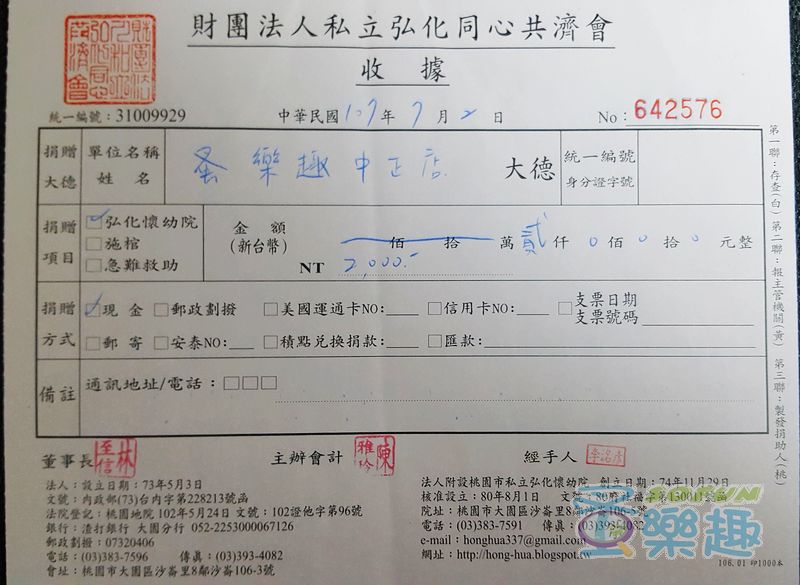 財團法人私立弘化同心共濟會
收 據
統一編號：31009929
中華民國 107 年 7 月 2 日
No: 642576
捐贈大德 單位名稱 姓 名 蚤樂趣中正店 大德 統一編號 身分證字號
捐贈項目 ☑弘化懷幼院 □施棺 □急難救助
金 額 (新台幣) 佰 拾 萬 貳 仟 0 佰 0 拾 0 元整
NT 2,000.-
捐贈方式 ☑現 金 □郵政劃撥 □美國運通卡NO: □信用卡NO: □支票日期 支票號碼
□郵 寄 □安泰NO: □積點兌換捐款: □匯款:
備註 通訊地址/電話：□□□
第一聯：存查(白) 第二聯：報主管機關(黃) 第三聯：製發捐助人(桃)
董事長 林至信 主辦會計 陳雅玲 經手人
法人：設立日期：73年5月3日
文號：內政部(73)台內字第228213號函
法院登記：桃園地院102年5月24日 文號：102證他字第96號
銀行：渣打銀行 大園分行 052-2253000067126
郵政劃撥：07320406
電話：(03)383-7596 傳真：(03)393-4082
會址：桃園市大園區沙崙里8鄰沙崙106-3號
法人附設桃園市私立弘化懷幼院 創立日期：74年11月29日
核准設立：80年8月1日 文號：80府社福字第130011號函
院址：桃園市大園區沙崙里8鄰沙崙106-5號
電話：(03)383-7591 傳真：(03)393-4082
e-mail：honghua337@gmail.com
網址：http://hong-hua.blogspot.tw
106.01 印1000本
樂趣